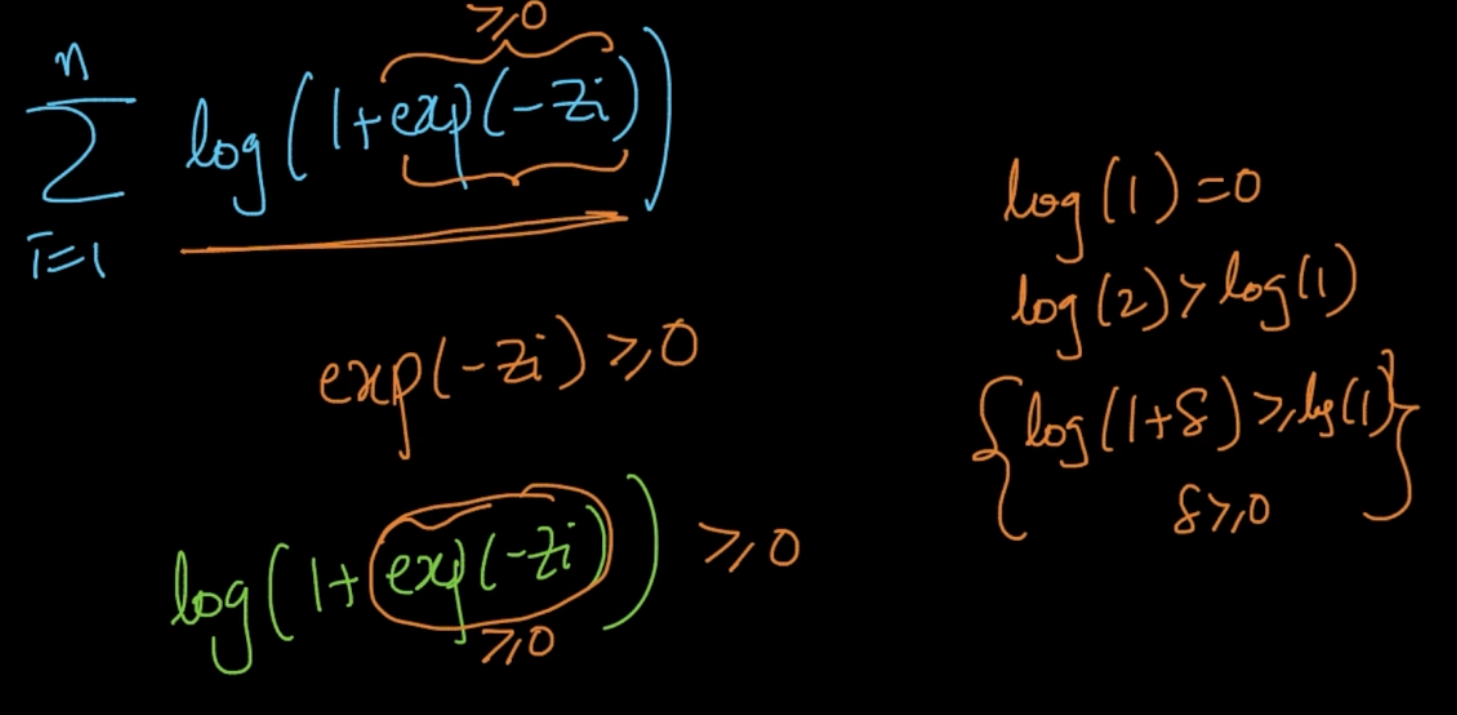 ≥0
n
∑ log(1+exp(-zi))
i=1
exp(-zi) ≥ 0
log(1+exp(-zi)) ≥ 0
≥0
log(1)=0
log(2)>log(1)
{log(1+δ) ≥ log(1)}
δ≥0